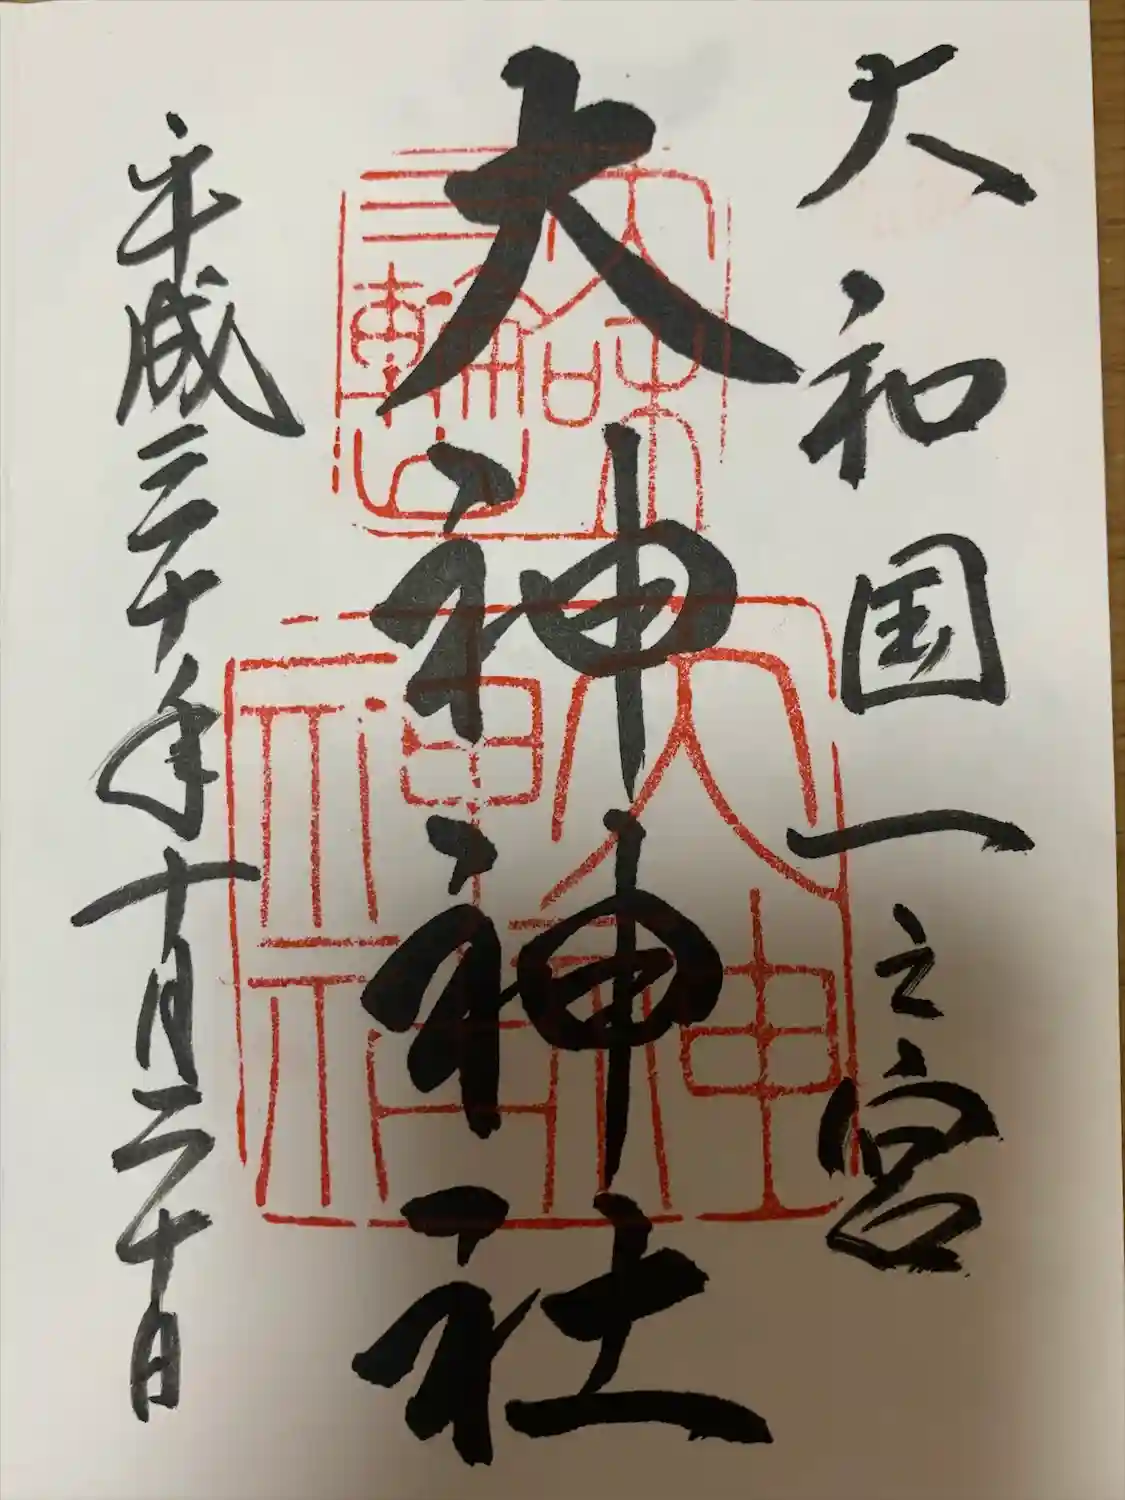 大和国一之宮
大神神社
平成三十年十月二十日
大和
三輪山
大神
神社